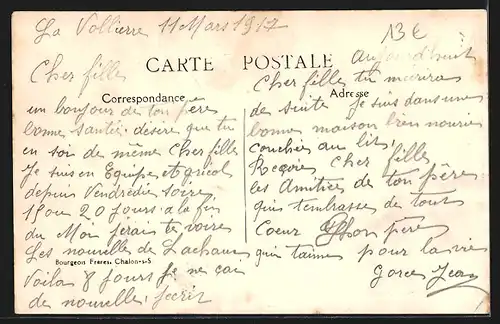 La Vollierre 11 Mars 1917
13 €
CARTE POSTALE
Correspondance
Adresse
Cher fille
un bonjour de ton père
bonne santé. desere que tu
en soi de même Cher fille
Je suis en Equipe
depuis Vendredie soire
15 ou 20 Jours a la fin
du Moi ferais te voire
Les nouvelle de Lachau
Voila 8 Jours Je ne
de nouvelle. Jecrit
Aujourdhuit
Cher fille tu mecrira
de suite Je suis dans une
bonne maison bien nourie
coucher au lit
Recois Cher fille
les Amities de ton père
qui tembrasse de tout
Coeur ton père
qui taime pour la vie
Gorce Jean
Bourgeon Frères. Chalon-s-S